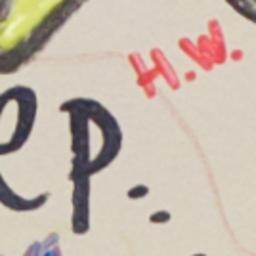 H.W.
ep..